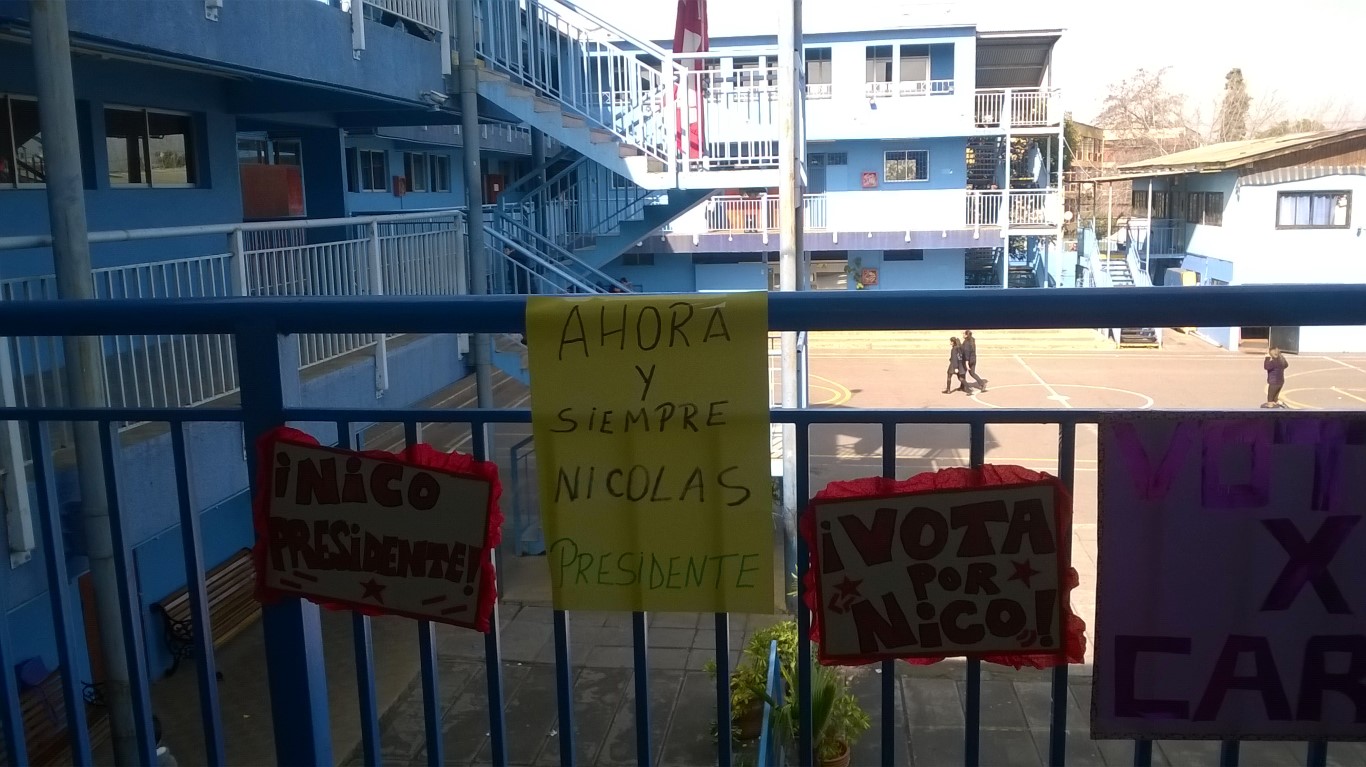 ¡NiCO
PRESiDENTE!
AHORA
Y
SiEMPRE
NICOLAS
PRESIDENTE
¡VOTA
POR
NiCO!
X